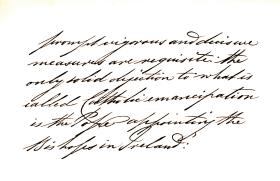 prompt vigorous and decisive
measures are requisite: the
only solid objection to what is
called Catholic emancipation
is the Pope appointing the
Bishops in Ireland: